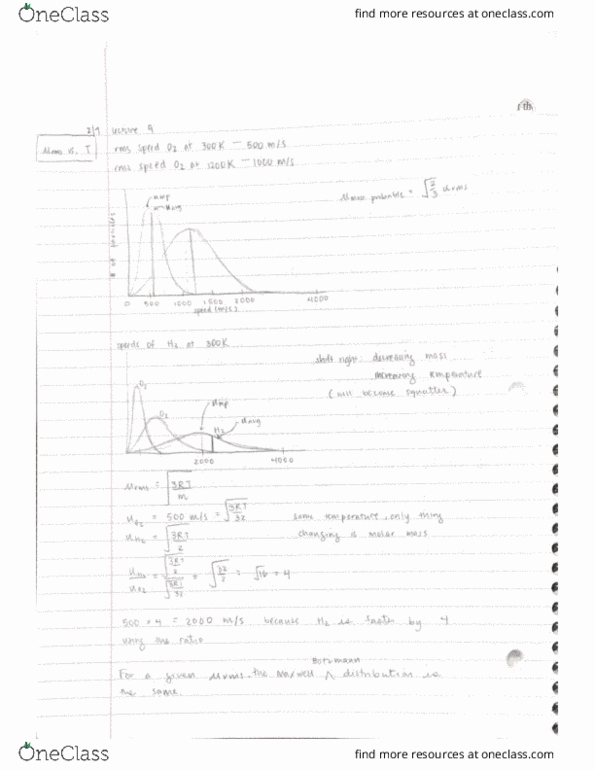 OneClass
find more resources at oneclass.com
2/9 Lecture 9
urms vs. T
rms speed O2 at 300K — 500 m/s
rms speed O2 at 1200K — 1000 m/s
ump
uavg
umost probable = √2/3 urms
# of particles
0 500 1000 1500 2000 4000
speed (m/s)
speeds of H2 at 300K
shift right: decreasing mass
increasing temperature
(will become squatter)
O2
ump
H2
uavg
2000 4000
urms = √3RT/m
uO2 = 500 m/s = √3RT/32
same temperature, only thing
changing is molar mass
uH2 = √3RT/2
uH2/uO2 = √3RT/2/√3RT/32 = √32/2 = √16 = 4
500 × 4 = 2000 m/s because H2 is faster by 4
using the ratio
Botzmann
For a given urms, the maxwell ^ distribution is
the same.
OneClass
find more resources at oneclass.com